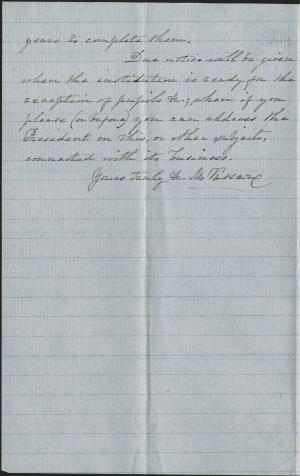 years to complete them.
Due notice will be given
when the institution is ready for the
reception of pupils &c; when if you
please (or before) you can address the
President on this, or other subjects,
connected with its business.
Yours truly &c. M. Vassar